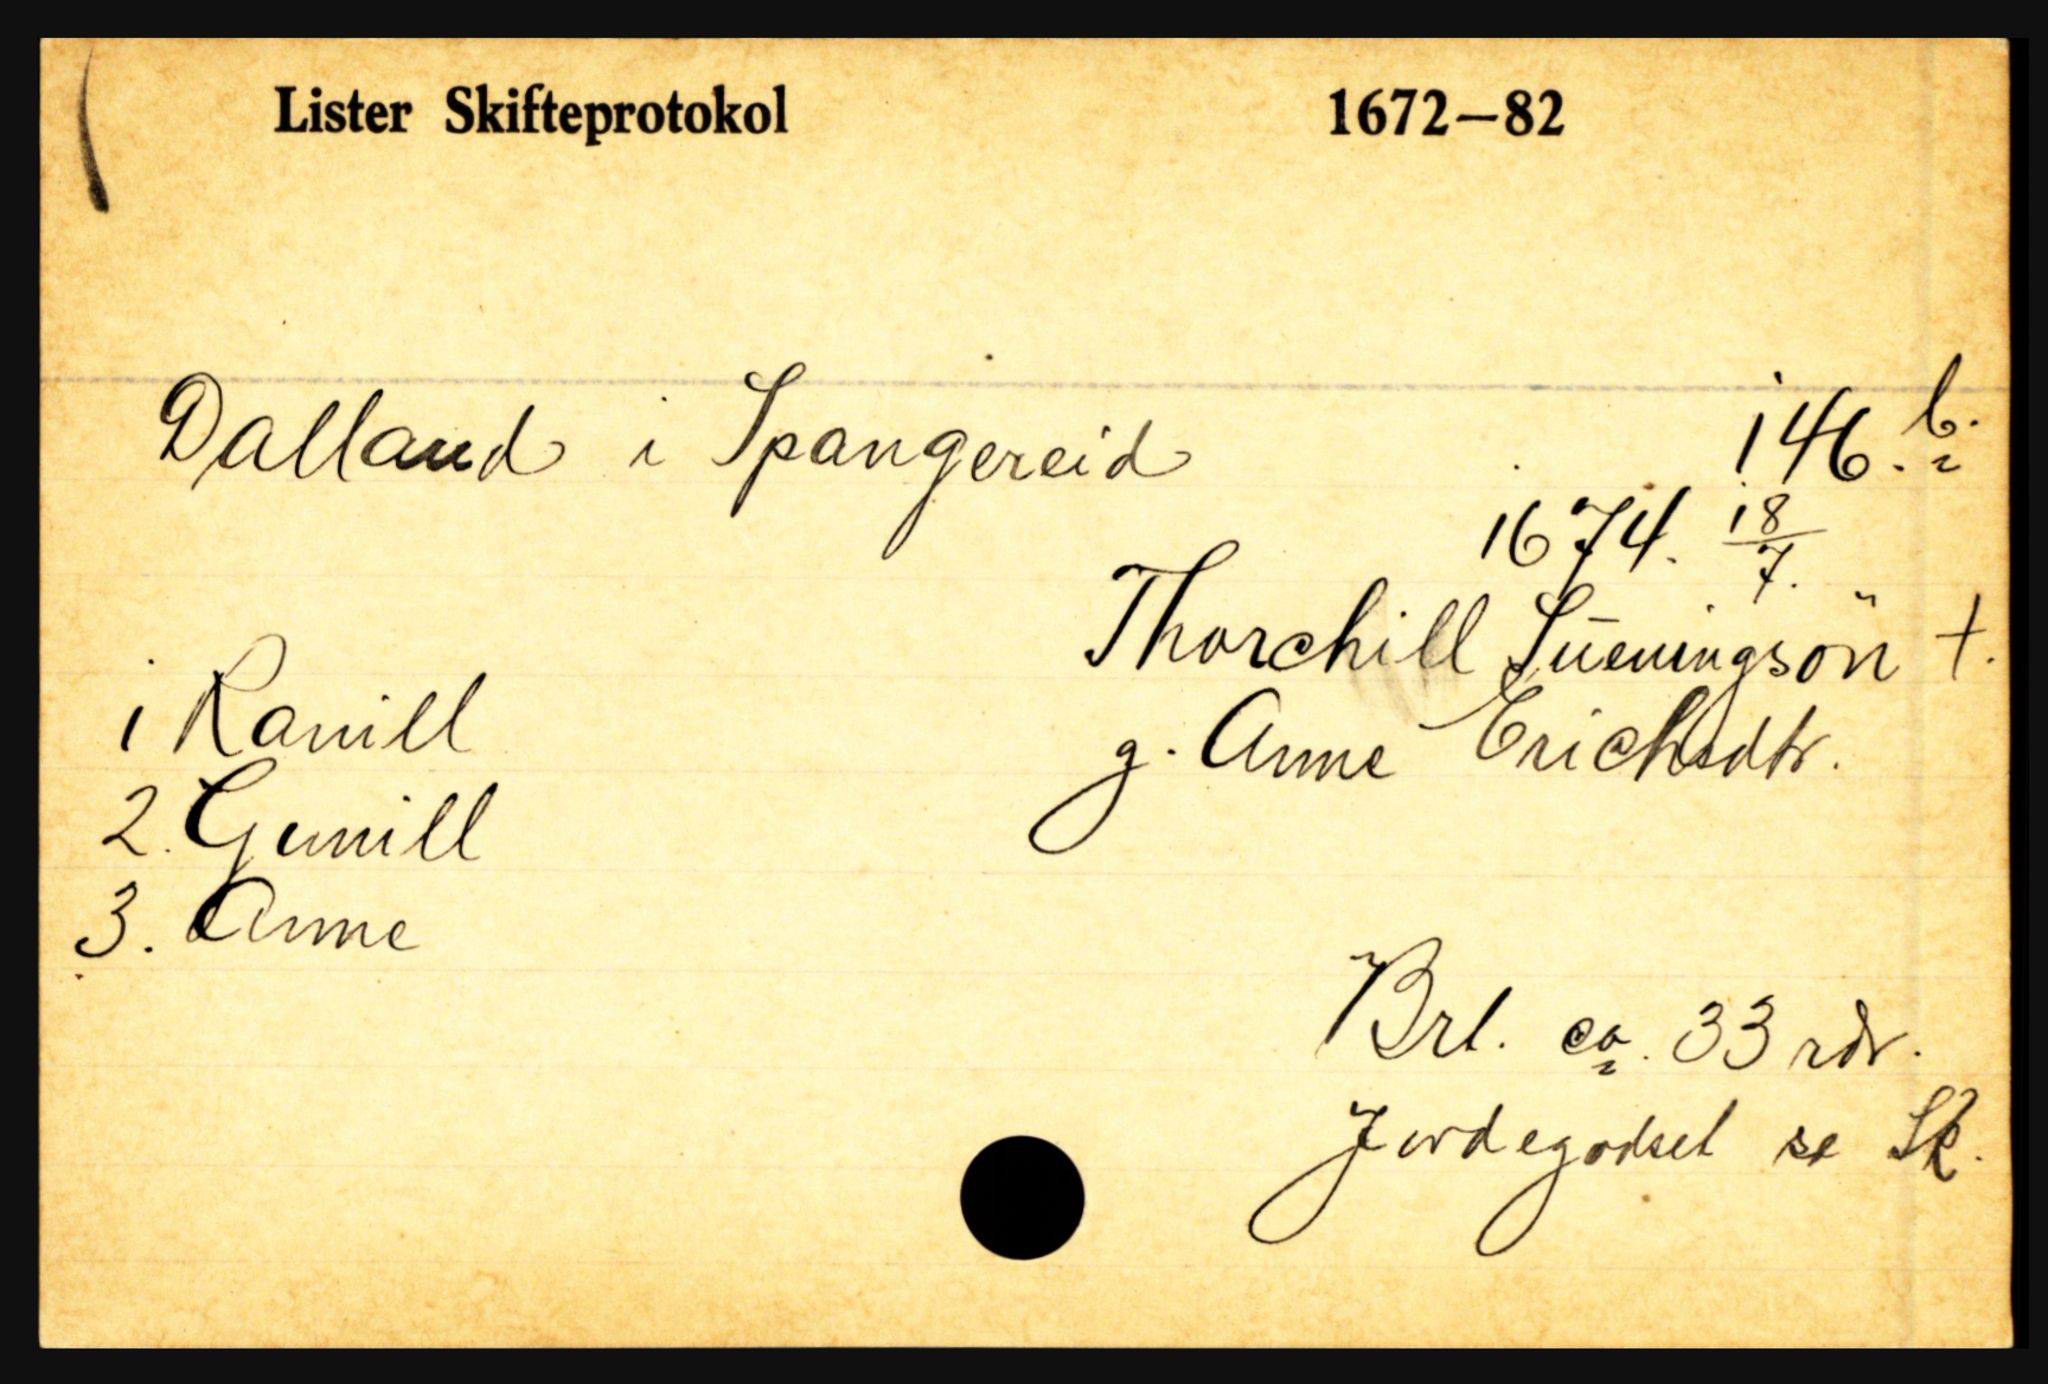 Lister Skifteprotokol 1672—82
Dalland i Spangereid 146. b.
1674. 18/7.
Thorchill Süeningsön †.
g. Anne Erichsdtr.
1 Ranill
2. Gunill
3. Anne
Brt. ca. 33 rdr.
Jordegodset se Sk.